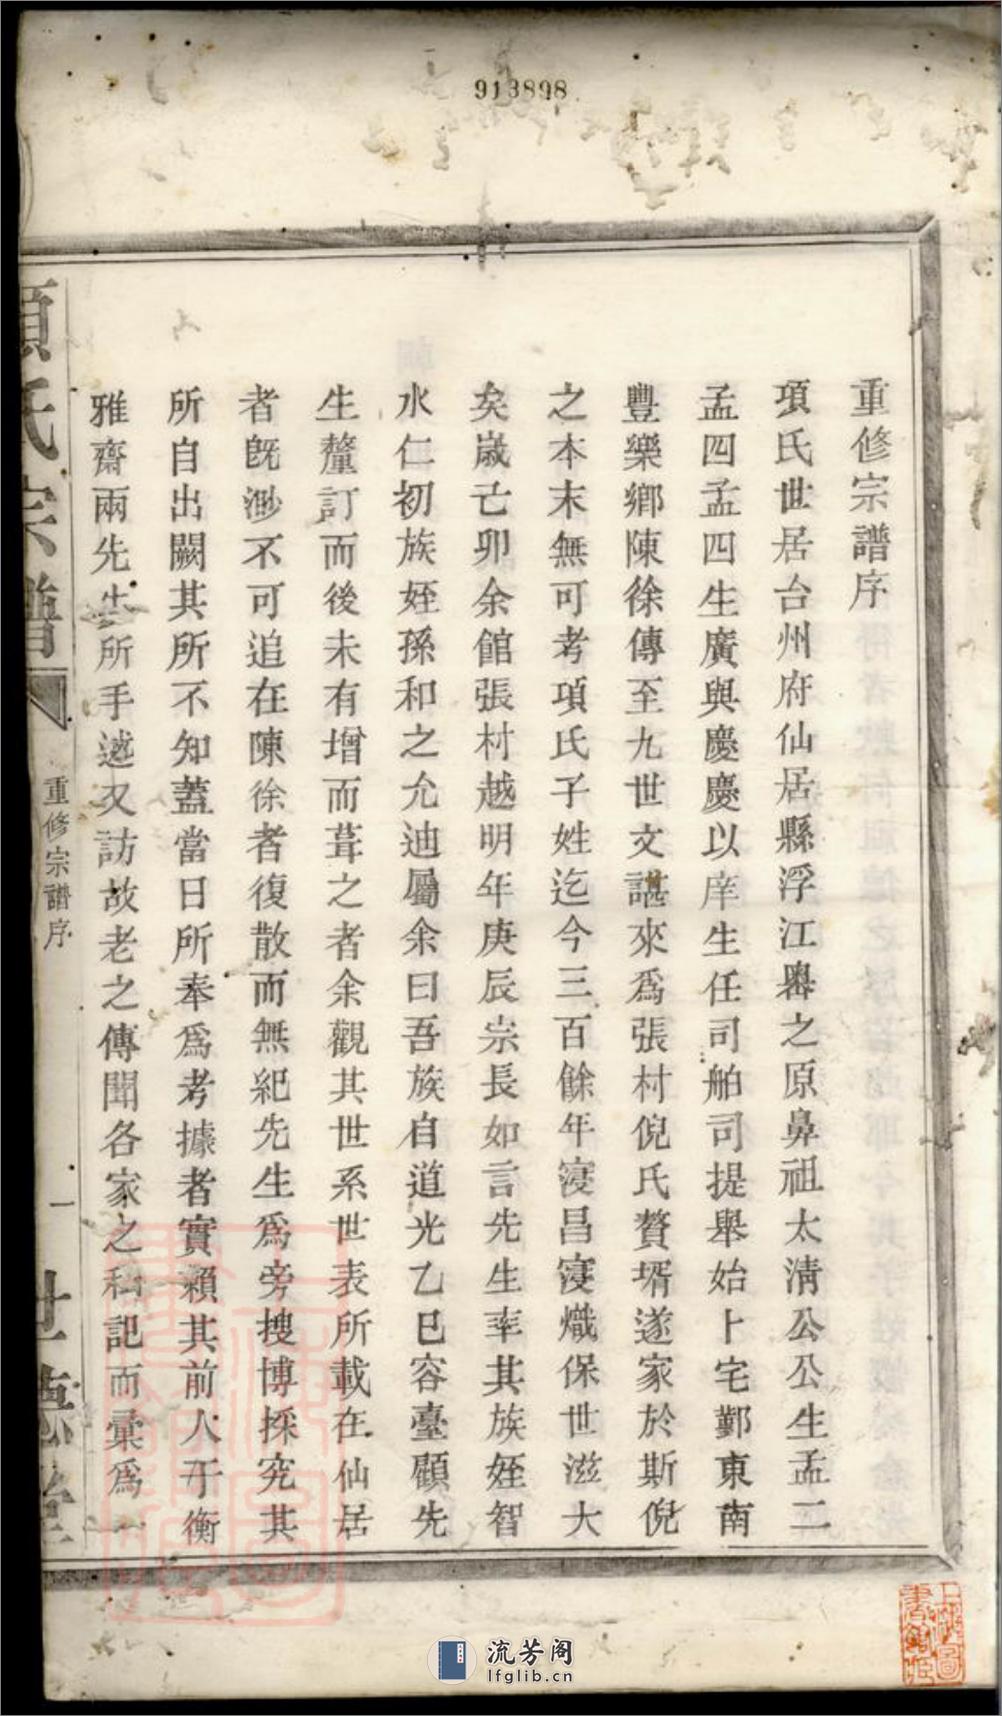 913898
重修宗譜序
項氏世居台州府仙居縣浮江㟁之原鼻祖太淸公公生孟二
孟四孟四生廣與慶慶以庠生任司舶司提舉始卜宅鄞東南
豐樂鄉陳徐傳至九世文諶來爲張村倪氏贅壻遂家於斯倪
之本末無可考項氏子姓迄今三百餘年寖昌寖熾保世滋大
矣歲己卯余館張村越明年庚辰宗長如言先生率其族姪智
水仁初族姪孫和之允迪屬余曰吾族自道光乙巳容臺顧先
生釐訂而後未有增而葺之者余觀其世系世表所載在仙居
者旣渺不可追在陳徐者復散而無紀先生爲旁搜博採究其
所自出闕其所不知蓋當日所奉爲考據者實賴其前人玗衡
雅齋兩先生所手述又訪故老之傳聞各家之私記而彙爲一
項氏宗譜
重修宗譜序
一
世德堂
流芳阁
lfglib.cn